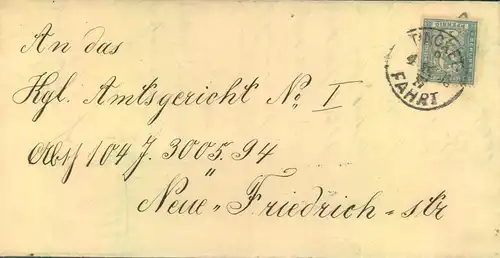 An das
Kgl. Amtsgericht No I
Abth 104 J. 3005. 94
"
Neue " Friedrich = str
FAHRT